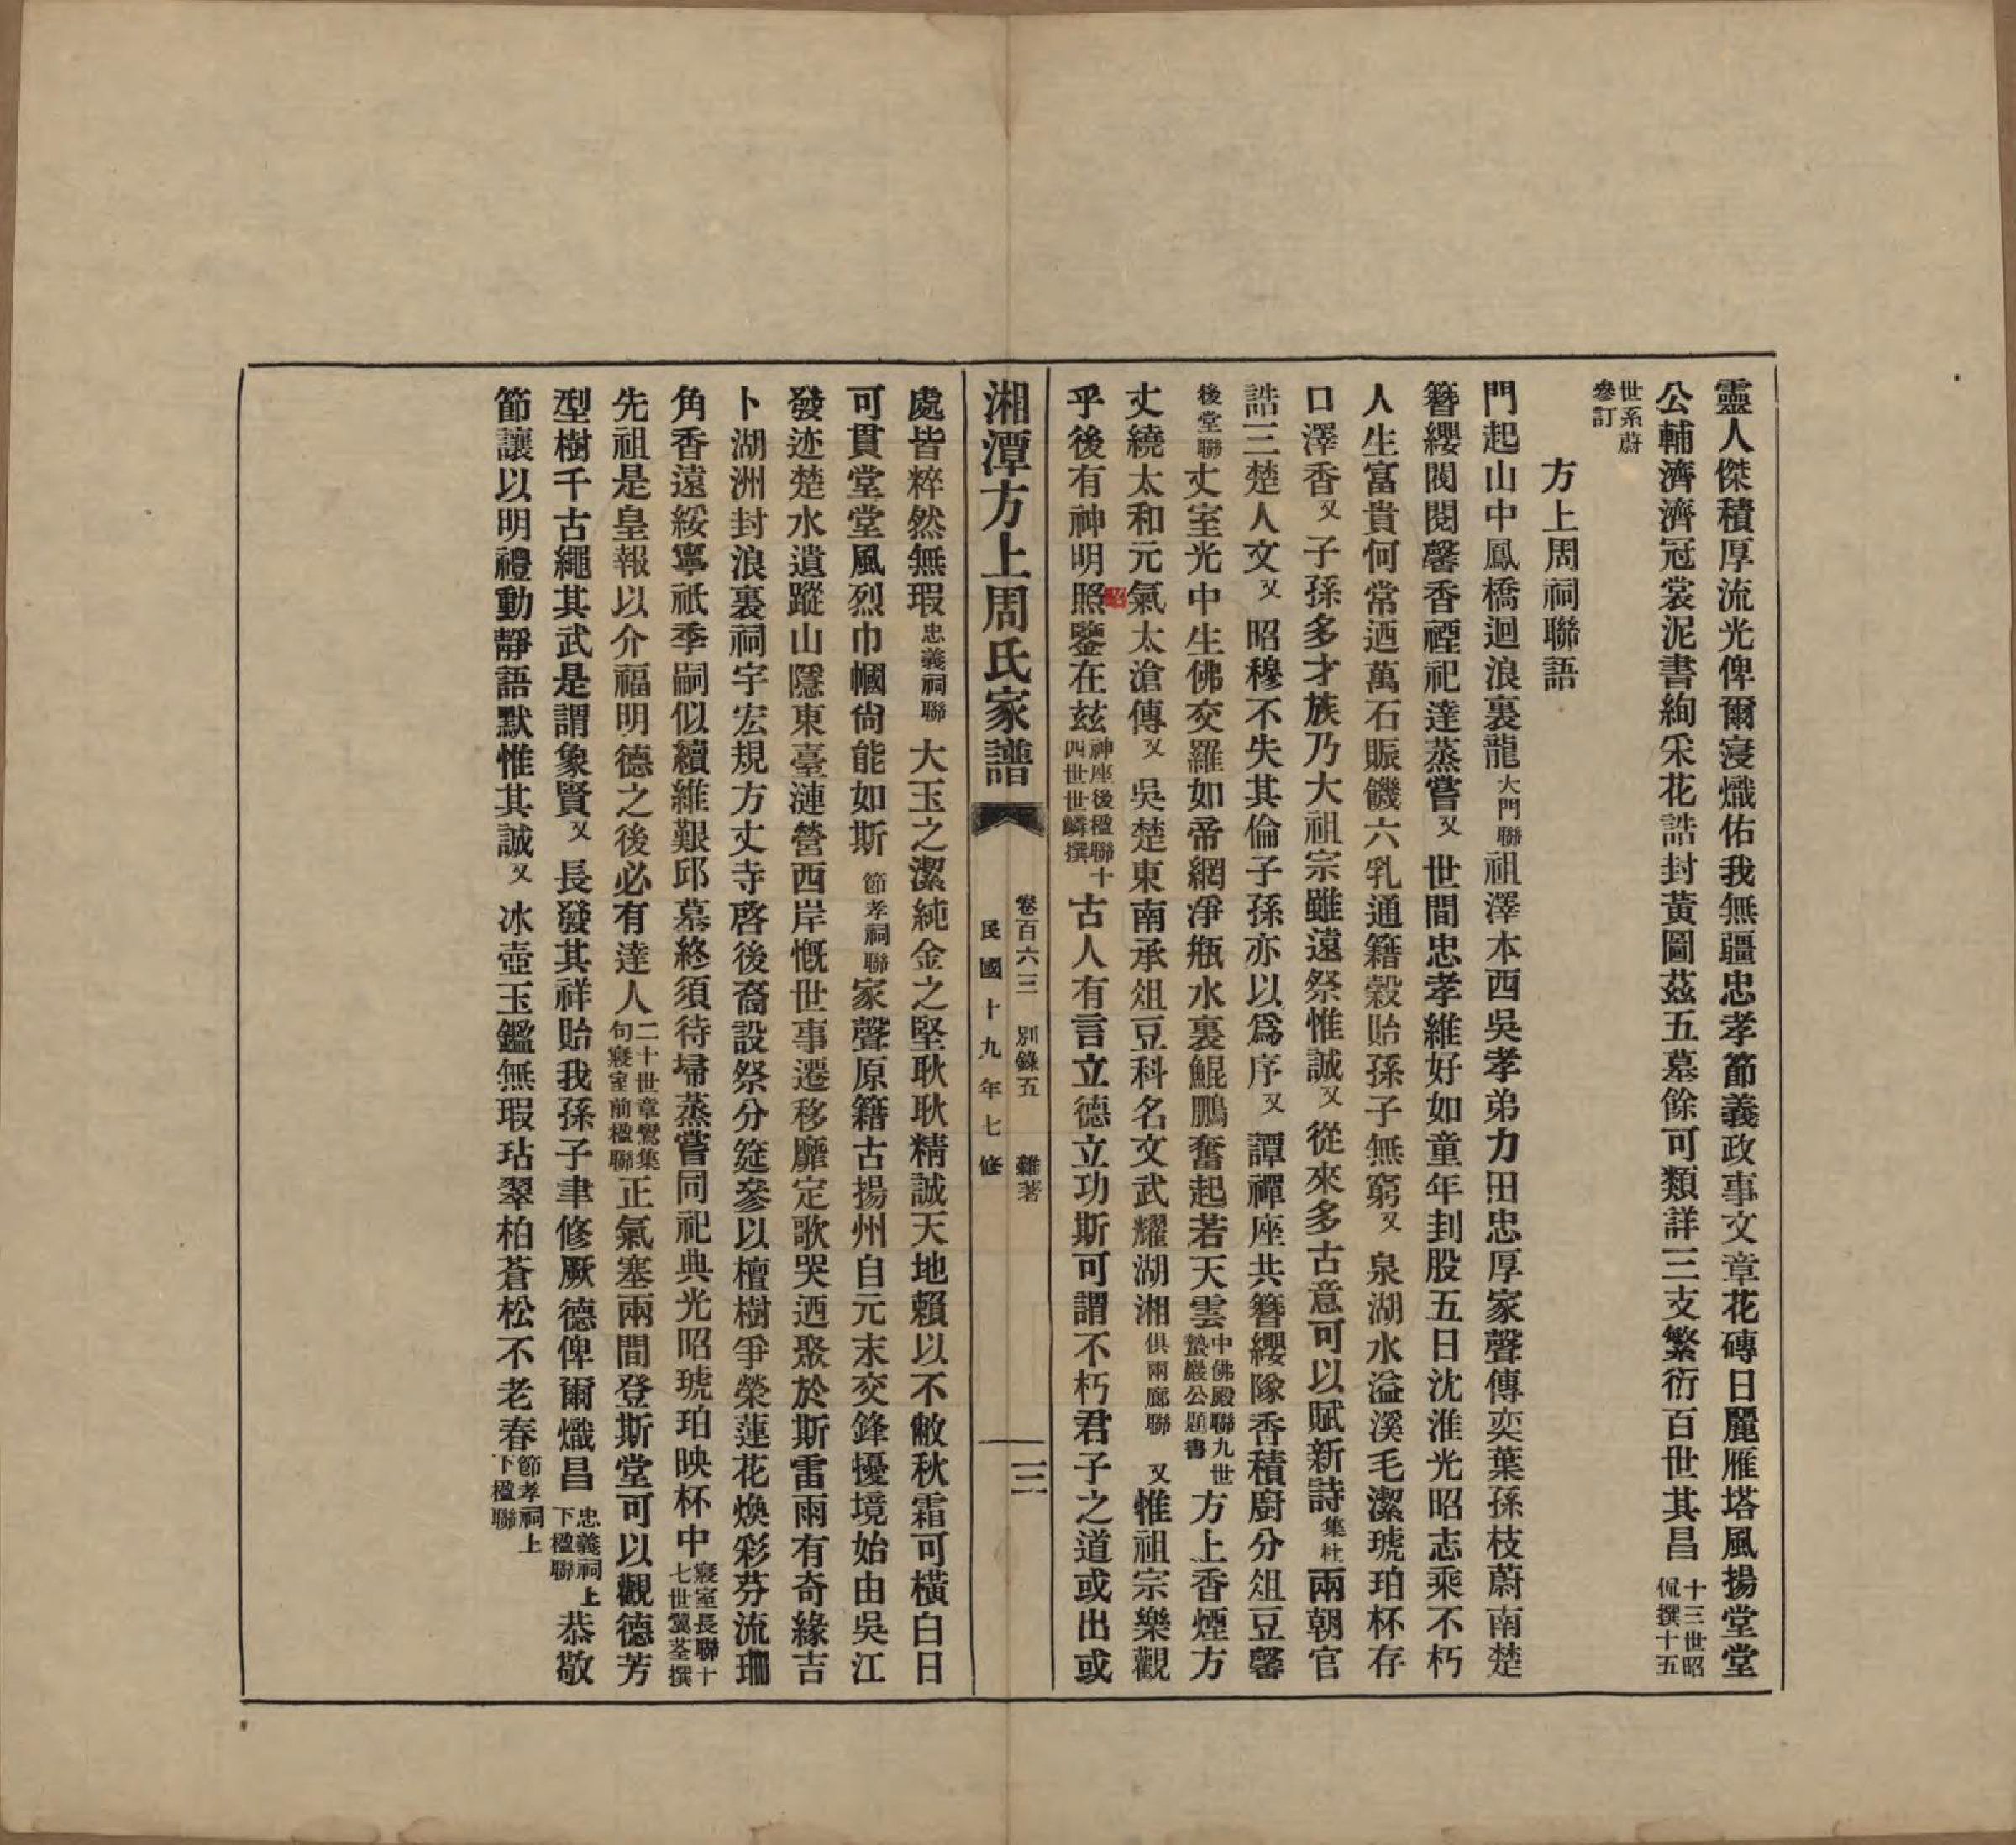 靈人傑積厚流光俾爾寖熾佑我無疆忠孝節義政事文章花磚日麗雁塔風揚堂堂
公輔濟濟冠裳泥書絢采花誥封黃圖茲五墓餘可類詳三支繁衍百世其昌十三世昭侃撰十五
世系蔚參訂
方上周祠聯語
門起山中鳳橋迴浪裏龍大門聯祖澤本西吳孝弟力田忠厚家聲傳奕葉孫枝蔚南楚
簪纓閥閱馨香禋祀達蒸嘗又世間忠孝維好如童年刲股五日沈淮光昭志乘不朽
人生富貴何常迺萬石賑饑六乳通籍穀貽孫子無窮又泉湖水溢溪毛潔琥珀杯存
口澤香又子孫多才族乃大祖宗雖遠祭惟誠又從來多古意可以賦新詩集杜兩朝官
誥三楚人文又昭穆不失其倫子孫亦以為序又譚禪座共簪纓隊香積廚分俎豆馨
後堂聯丈室光中生佛交羅如帝網淨瓶水裏鯤鵬奮起若天雲中佛殿聯九世蟄巖公題書方上香煙方
丈繞太和元氣太滄傳又吳楚東南承俎豆科名文武耀湖湘俱兩廊聯又惟祖宗樂觀
乎後有神明照鑒在茲神座後楹聯十四世世鱗撰古人有言立德立功斯可謂不朽君子之道或出或
湘潭方上周氏家譜
卷百六三 別錄五 雜著
民國十九年七修
三
處皆粹然無瑕忠義祠聯大玉之潔純金之堅耿耿精誠天地賴以不敝秋霜可橫白日
可貫堂堂風烈巾幗尙能如斯節孝祠聯家聲原籍古揚州自元末交鋒擾境始由吳江
發迹楚水遺蹤山隱東臺漣營西岸慨世事遷移靡定歌哭迺聚於斯雷雨有奇緣吉
卜湖洲封浪裏祠宇宏規方丈寺啓後裔設祭分筵參以檀樹爭榮蓮花煥彩芬流珊
角香遠綏寧祇季嗣似續維艱邱墓終須待埽蒸嘗同祀典光昭琥珀映杯中寢室長聯十七世翼荃撰
先祖是皇報以介福明德之後必有達人二十世章鷟集句寢室前楹聯正氣塞兩間登斯堂可以觀德芳
型樹千古繩其武是謂象賢又長發其祥貽我孫子聿修厥德俾爾熾昌忠義祠上下楹聯恭敬
節讓以明禮動靜語默惟其誠又冰壺玉鑑無瑕玷翠柏蒼松不老春節孝祠上下楹聯